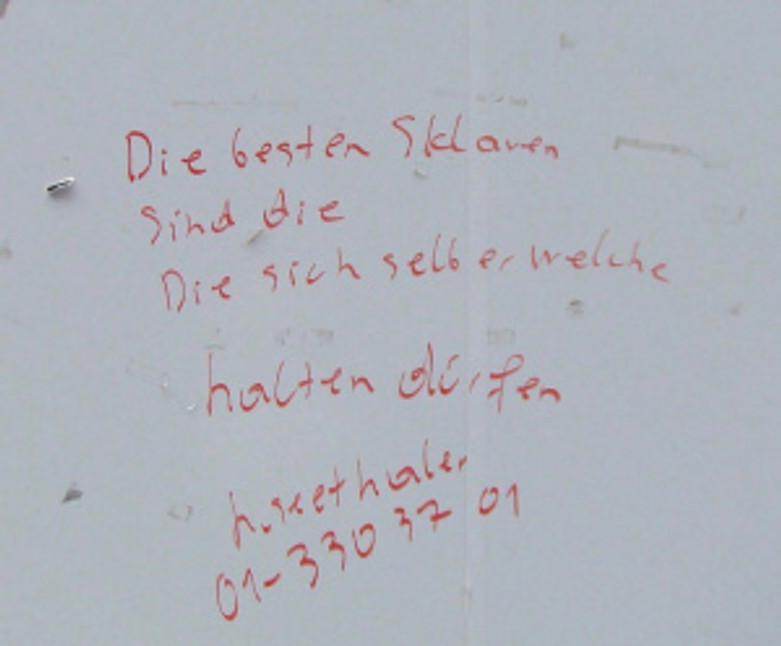 Die besten Sklaven
sind die
Die sich selber welche
halten dürfen
h.seethaler
01-330 37 01